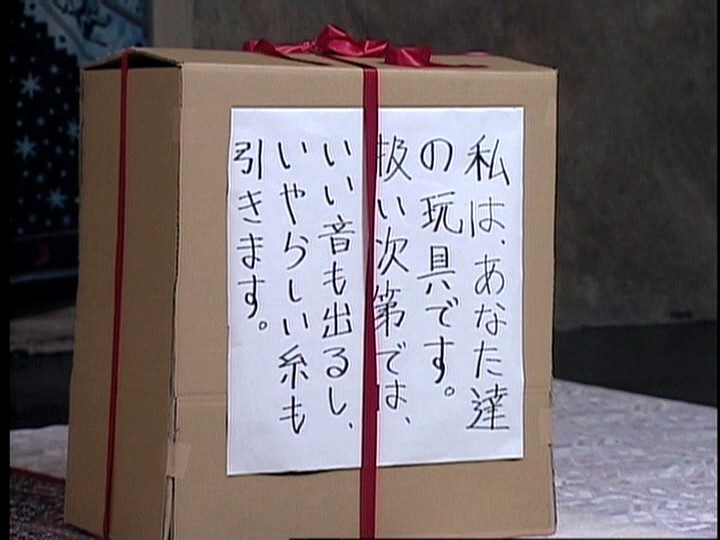 私は、あなた達
の玩具です。
扱い次第では、
いい音も出るし、
いやらしい糸も
引きます。